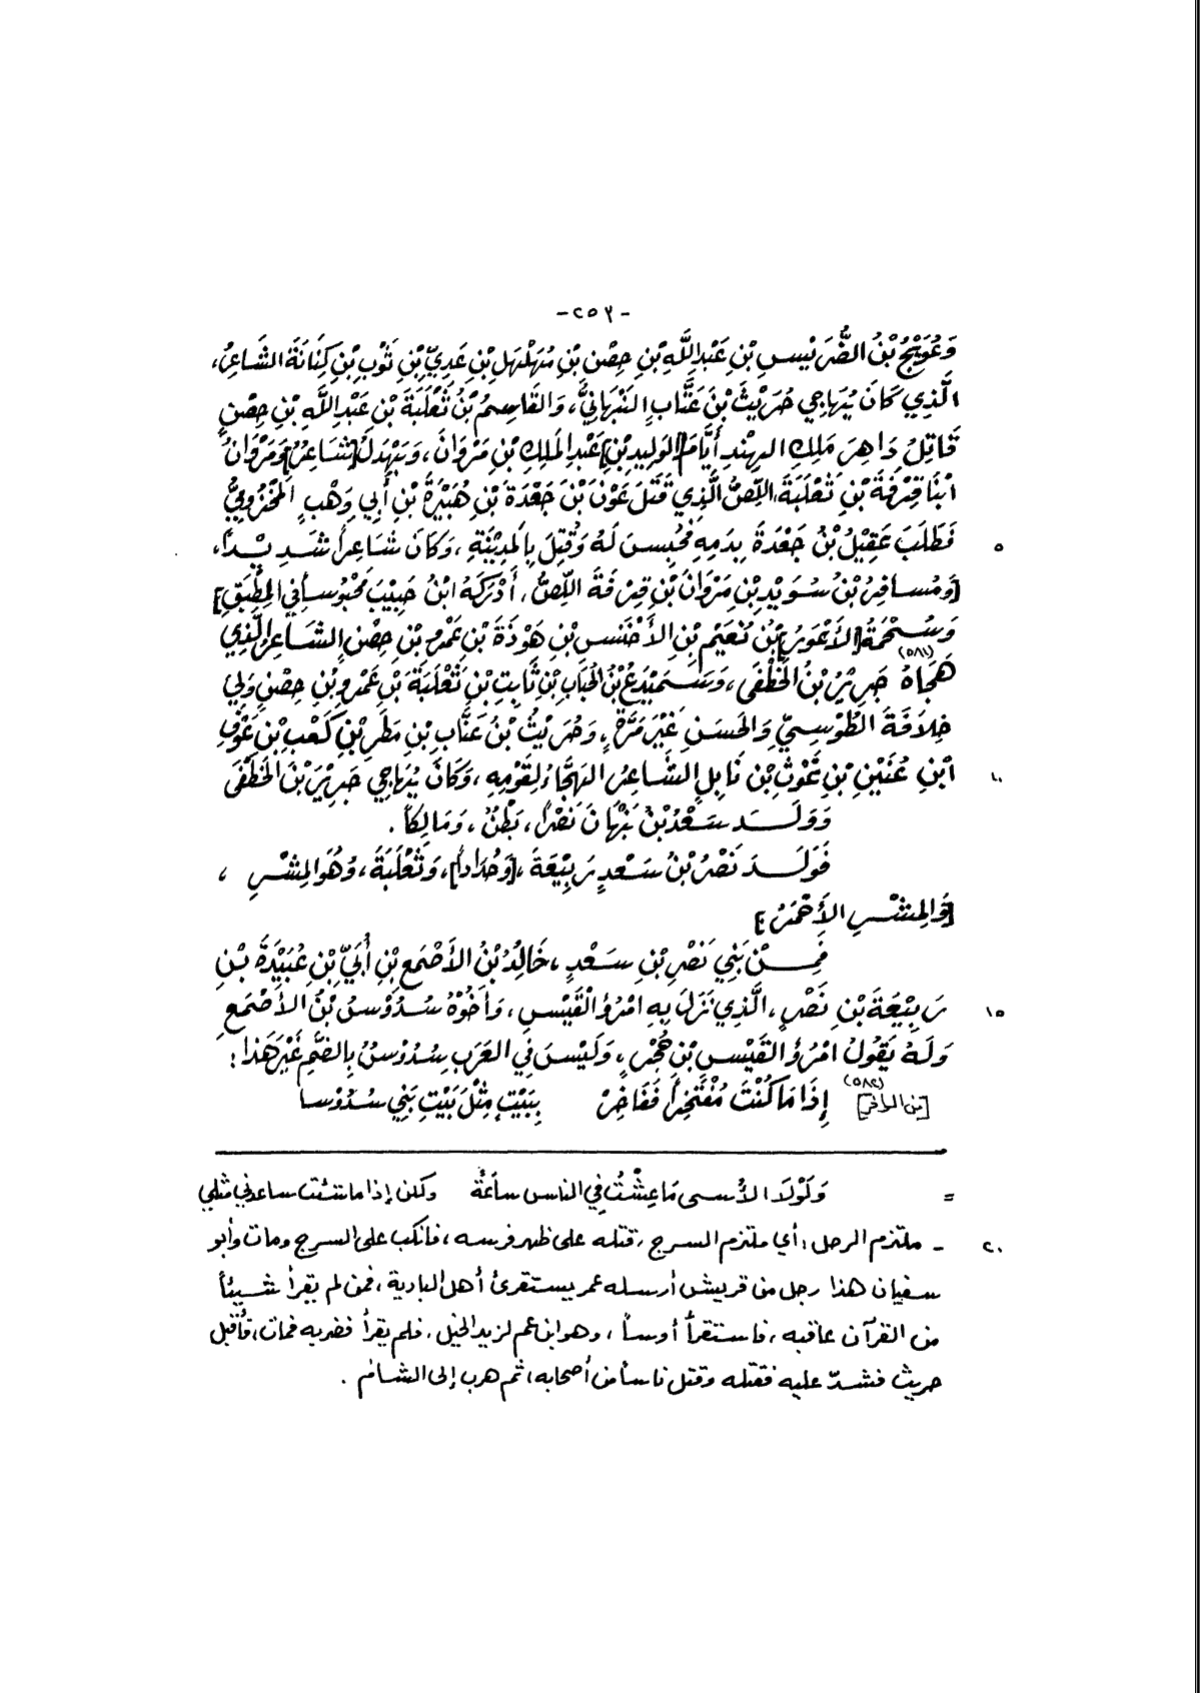 -٢٥٣-
وَعُوَيْجُ بْنُ الضُّرَيْسِ بْنِ عَبْدِ اللَّهِ بْنِ حِصْنِ بْنِ مُهَلْهَلِ بْنِ عَدِيِّ بْنِ ثَوْبِ بْنِ كِنَانَةَ الشَّاعِرُ،
الَّذِي كَانَ يُهَاجِي حُرَيْثَ بْنَ عَنَّابٍ النَّبْهَانِيَّ، وَالقَاسِمُ بْنُ ثَعْلَبَةَ بْنِ عَبْدِ اللَّهِ بْنِ حِصْنٍ
قَاتِلُ دَاهِرَ مَلِكِ الهِنْدِ أَيَّامَ [الوَلِيدِ بْنِ] عَبْدِ المَلِكِ بْنِ مَرْوَانَ، وَبَهْدَلُ [شَاعِرٌ] وَمَرْوَانُ
ابْنَا قِرْفَةَ بْنِ ثَعْلَبَةَ، اللِّصُّ الَّذِي قَتَلَ عَوْنَ بْنَ جَعْدَةَ بْنِ هُبَيْرَةَ بْنِ أَبِي وَهْبٍ المَخْزُومِيَّ
٥ فَطَلَبَ عَقِيلُ بْنُ جَعْدَةَ بِدَمِهِ فَحُبِسَ لَهُ وَقُتِلَ بِالمَدِيْنَةِ، وَكَانَ شَاعِراً شَدِيْداً،
[وَمُسَافِرُ بْنُ سُوَيْدِ بْنِ مَرْوَانَ بْنِ قِرْفَةَ اللِّصُّ، أَدْرَكَهُ ابْنُ حَبِيْبَ مَحْبُوساً فِي المِطْبَقِ]
وَسُحْمَةُ [الأَعْوَرُ] بْنُ نُعَيْمِ بْنِ الأَخْنَسِ بْنِ هَوْذَةَ بْنِ عَمْرِو بْنِ حِصْنٍ الشَّاعِرُ الَّذِي
هَجَاهُ (٥٨١) جَرِيْرُ بْنُ الخَطَفَى، وَسَمَيْدَعُ بْنُ الحُبَابِ بْنِ ثَابِتِ بْنِ ثَعْلَبَةَ بْنِ عَمْرِو بْنِ حِصْنٍ وَلِيَ
خِلَافَةَ الطُّوْسِيِّ وَالحَسَنِ غَيْرَ مَرَّةٍ، وَحُرَيْثُ بْنُ عَنَّابِ بْنِ مَطَرِ بْنِ كَعْبِ بْنِ عَوْفِ
١٠ ابْنِ عُنَيْنِ بْنِ غَوْثِ بْنِ نَابِلٍ الشَّاعِرُ الهَجَّاءُ لِقَوْمِهِ، وَكَانَ يُهَاجِي جَرِيْرَ بْنَ الخَطَفَى
وَوَلَدَ سَعْدُ بْنُ نَبْهَانَ نَصْراً، بَطْنٌ، وَمَالِكاً.
فَوَلَدَ نَصْرُ بْنُ سَعْدٍ رَبِيْعَةَ، [وَحُدَاداً]، وَثَعْلَبَةَ، وَهُوَ المِشْرِ،
[وَالمِشْرِ الأَحْمَرُ]
فَمِنْ بَنِي نَصْرِ بْنِ سَعْدٍ، خَالِدُ بْنُ الأَصْمَعِ بْنِ أُبَيِّ بْنِ عُبَيْدَةَ بْنِ
١٥ رَبِيْعَةَ بْنِ نَصْرٍ، الَّذِي نَزَلَ بِهِ امْرُؤُ القَيْسِ، وَأَخُوْهُ سُدُوْسُ بْنُ الأَصْمَعِ
وَلَهُ يَقُولُ امْرُؤُ القَيْسِ بْنِ حُجْرٍ، وَلَيْسَ فِي العَرَبِ سُدُوْسٌ بِالضَّمِّ غَيْرَ هَذَا:
[من الوافر] (٥٨٢) إِذَا مَا كُنْتَ مُفْتَخِراً فَفَاخِرْ بِبَيْتٍ مِثْلِ بَيْتِ بَنِي سُدُوْسا
= وَلَوْلَا الأُسى مَا عِشْتُ فِي الناس سَاعَةً ولكن إذا ما شئت ساعدني مثلي
٢٠ - ملتزم الرحل: أي ملتزم السرج، قتله على ظهر فرسه، فانكب على السرج ومات وأبو
سفيان هذا رجل من قريش أرسله عمر يستقرئ أهل البادية، فمن لم يقرأ شيئاً
من القرآن عاقبه، فاستقرأ أوساً، وهو ابن عم لزيد الخيل، فلم يقرأ فضربه فمات، فأقبل
حريث فشدّ عليه فقتله وقتل ناساً من أصحابه، ثم هرب إلى الشام.